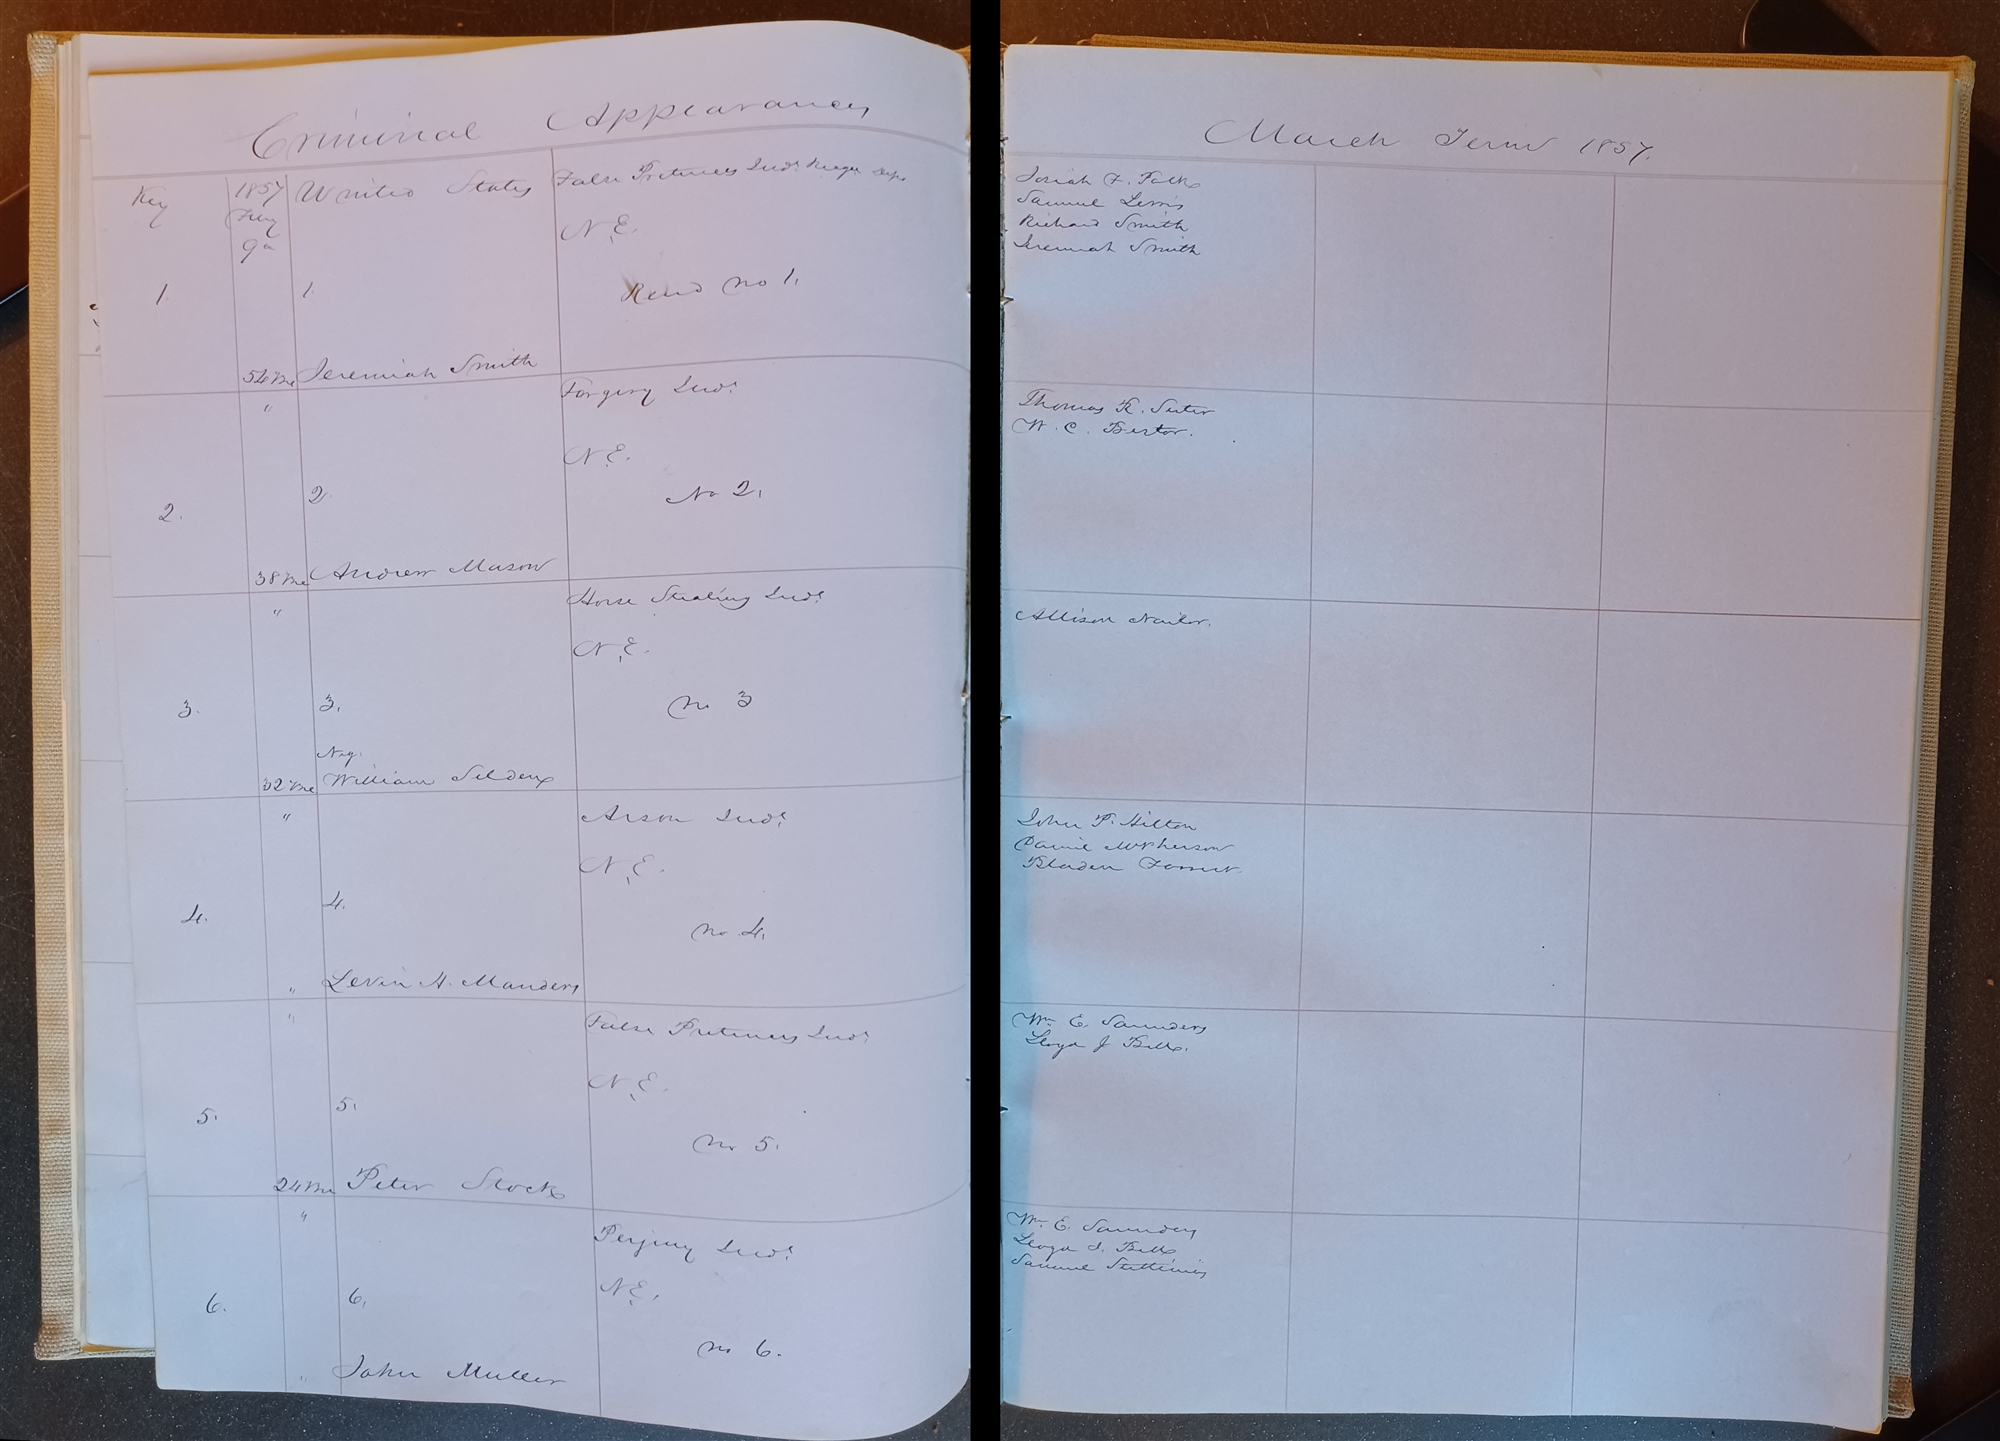 Criminal Appearances
Key 1857 United States False Pretences Indt
Feby
9th
N.E.
1. 1. no 1.
54 Me Jeremiah Smith
" Forgery Indt
N.E.
2. 2. No 2.
38 Me Andrew Mason
" Horse Stealing Indt
N.E.
3. 3. no 3
Neg.
32 Me William Selden
" Arson Indt
N.E.
4. 4. no 4.
" Levin H. Manders
" False Pretences Indt
N.E.
5. 5. no 5.
24 Me Peter Stock
" Perjury Indt
N.E.
6. 6. no 6.
" John Muller
March Term 1857.
Josiah F. Polk
Samuel Lewis
Richard Smith
Jeremiah Smith
Thomas R. Suter
W. C. Bestor.
Allison Nailor.
John P. Hilton
McPherson
Bladen Forrest
Wm E. Saunders
Lloyd J Bell.
Wm E. Saunders
Lloyd J. Bell
Samuel Stettinius